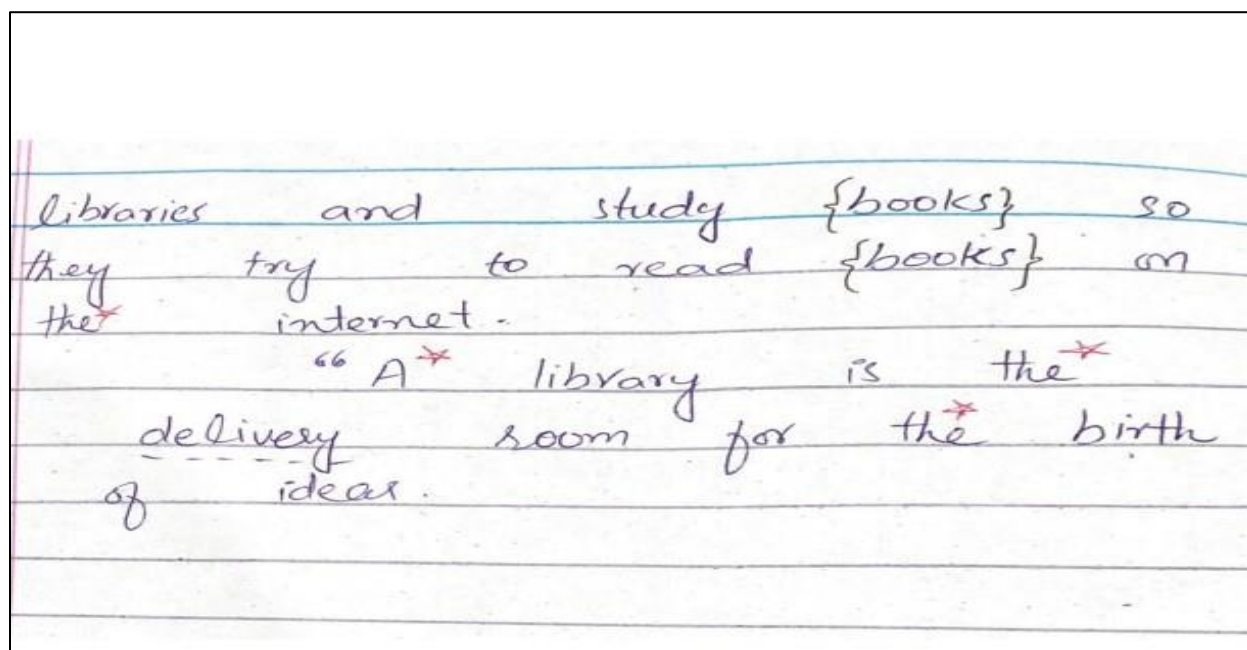 libraries and study {books} so
they try to read {books} on
the* internet.
“A* library is the*
delivery room for the* birth
of ideas.